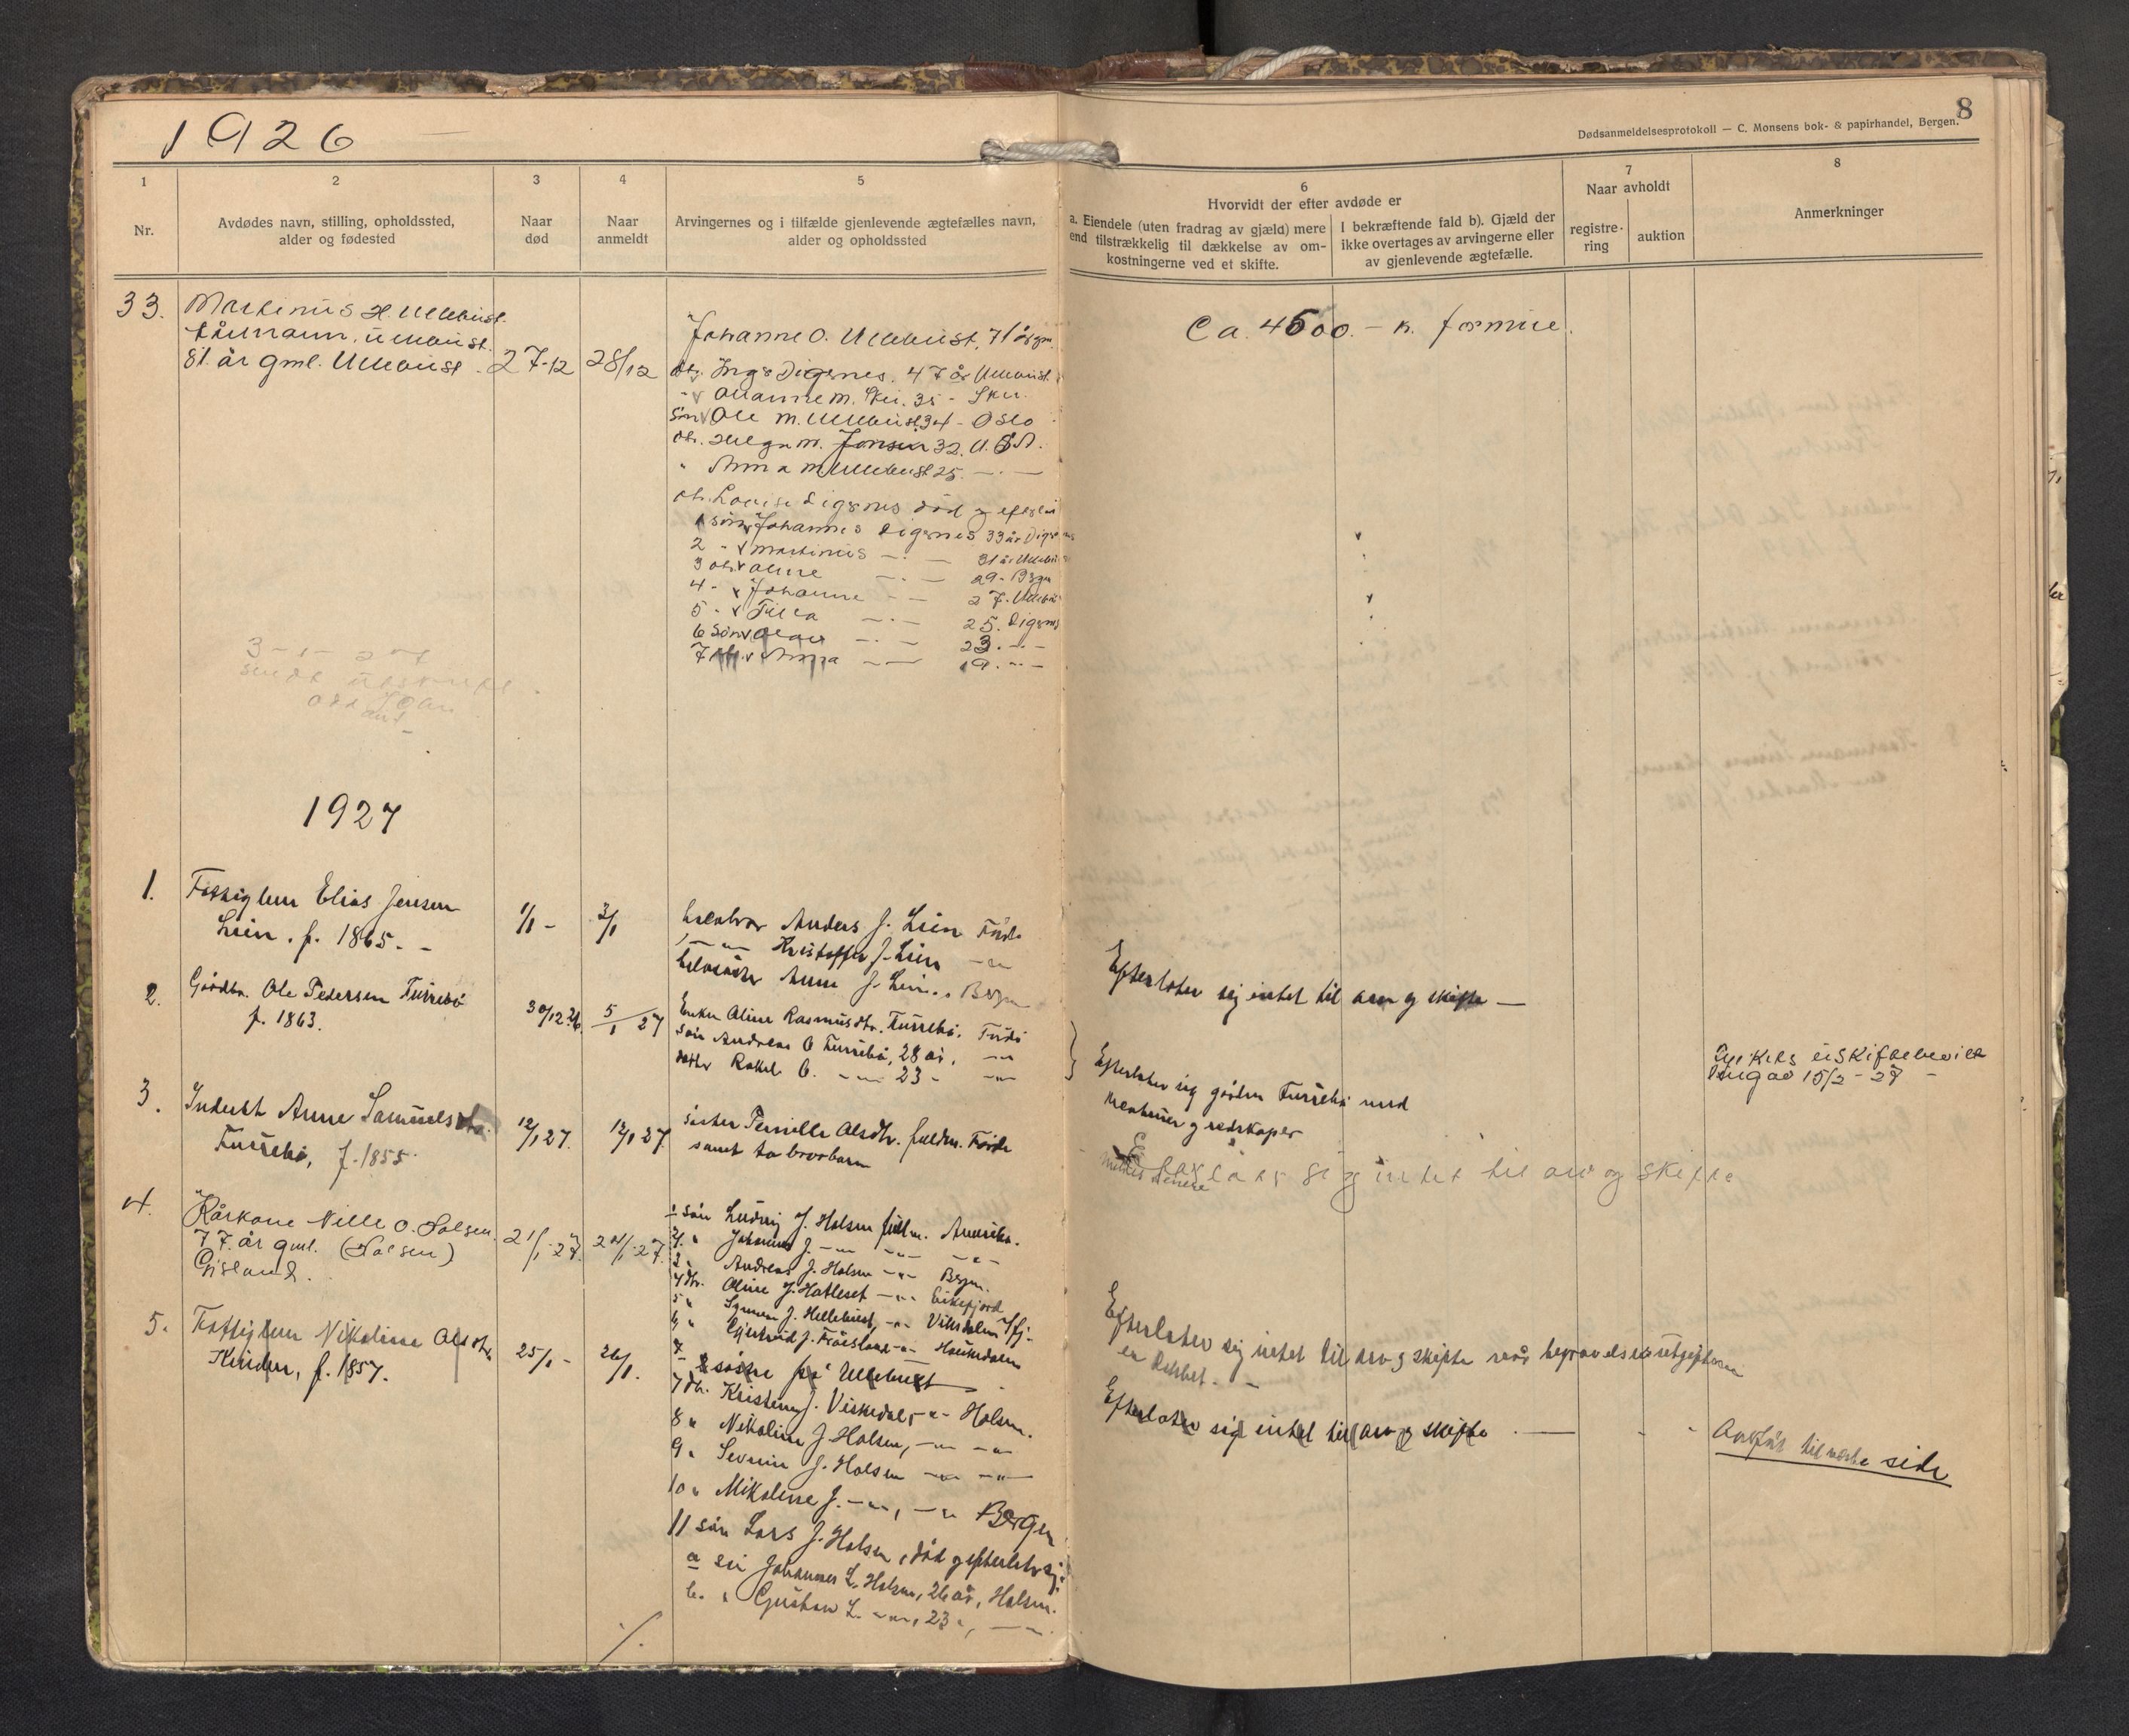 1926
8
Dødsanmeldelsesprotokoll — C. Monsens bok- & papirhandel, Bergen.
1
2
3
4
5
6
7
8
Nr.
Avdødes navn, stilling, opholdssted,
alder og fødested
Naar
død
Naar
anmeldt
Arvingernes og i tilfælde gjenlevende ægtefælles navn,
alder og opholdssted
Hvorvidt der efter avdøde er
a. Eiendele (uten fradrag av gjæld) mere
end tilstrækkelig til dækkelse av om-
kostningerne ved et skifte.
I bekræftende fald b). Gjæld der
ikke overtages av arvingerne eller
av gjenlevende ægtefælle.
Naar avholdt
registre-
ring
auktion
Anmerkninger
33.
Martinus H. Ullebust.
kårmann, Ullebust.
81. år gml. Ullebust.
27-12
28/12
Johanne O. Ullebust, 71 år gm.
dtr. Inga Digernes. 47 år Ullebust.
Skei. 35 - Skei.
søn Ole M. Ullebust 34 - Oslo
dtr. Helga M. Jensen 32. U.S.A.
" Anna M Ullebust 25. — " —
dtr. Louise Digernes død og efterl.
1 søn Johannes Digernes 33 år Digernes
2 - Martinus — " — 31 år Ullebust
3 dtr. — " — 29 - Brgn
4 - Johanne — — 27. Ullebust
5 - — " — 25. Digernes
6 søn — " — 23. " —
7 dtr. Anna — — 19. " —
Ca. 4500.- kr. formue.
3-1-27
sendt utskrift
1927
1.
Fattiglem Elias Jensen
Lien. f. 1865. -
1/1 -
3/1
halvbror Anders J. Lien Førde
— " — Kristoffer J. Lien — " —
halvsøster Anne J. Lien. Brgn
Efterlater sig intet til arv og skifte —
2.
Gårdbr. Ole Pedersen Furrebø
f. 1863.
30/12 26
5/1 27
Enke Oline Rasmusdtr. Furrebø. Førde
søn Andreas O Furrebø, 28 år. — " —
datter Rakel O. — " — 23 - — " —
Efterlater sig gården Furrebø med
kreaturer og redskaper
uskiftebevill.
15/2 - 27 -
3.
Inderst Anne Samuelsdtr.
Furrebø, f. 1855
12/1 27.
12/1 27.
søster Pernille Olsdtr. fuldm. Førde
samt to brorbarn
Efterlater sig intet til arv og skifte
4.
Kårkone Nille O. Holsen.
77. år gml. (Holsen)
21/1-27.
24/1-27.
1 søn Ludvig J. Holsen fuldm. Amerika.
2. " Johannes J. — " — — " — — " —
3 " Andreas J. Holsen — " — Brgn.
4 dtr. Oline J. Hatleset — " — Eikefjord
5 " J. Hellebust, — " — Viksdalen
6 " Gjertrud J. Frøisland — " — Haukedalen
7 2 søstre på Ullebust
7 dtr. Kristine J. Viskedal, - " - Holsen.
8 " Nikoline J. Holsen, — " — — " —
9 " Severine J. Holsen — " — — " —
10 " Mikoline J. — " —, — " — Bergen
11 søn Lars J. Holsen, død og efterlater sig:
a søn Johannes L. Holsen, 26 år, Holsen.
b. " Gustav L. — " —, 23 ", — " —
Efterlater sig intet til arv og skifte når begravelsesutgiftene
er dekket. -
5.
Fattiglem Nikoline Olsdtr.
f. 1857.
25/1 -
26/1.
Efterlater sig intet til arv og skifte. —
Anført til næste side
./.